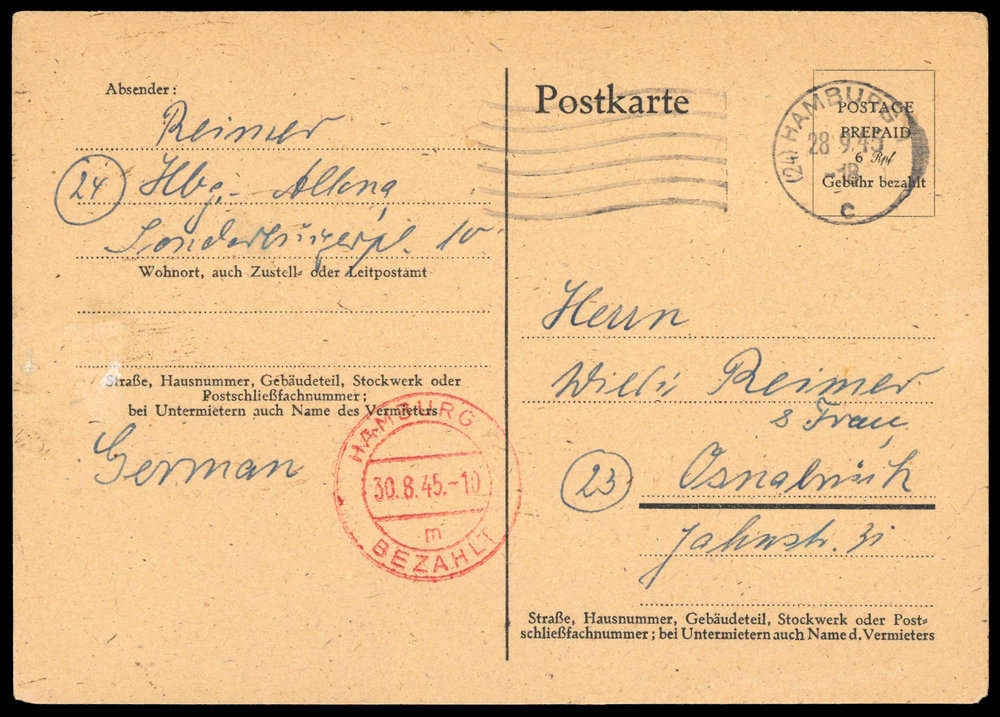 Absender:
Reimer
24 Hbg.- Altona
Sonderburgerpl. 10
Wohnort, auch Zustell- oder Leitpostamt
Straße, Hausnummer, Gebäudeteil, Stockwerk oder
Postschließfachnummer;
bei Untermietern auch Name des Vermieters
German
HAMBURG
30.8.45.-10
m
BEZAHLT
Postkarte
POSTAGE
PREPAID
6 Rpf
Gebühr bezahlt
(24) HAMBURG
28.9.45
-18
c
Herrn
Willi Reimer
& Frau
23 Osnabrück
Jahnstr. 31
Straße, Hausnummer, Gebäudeteil, Stockwerk oder Post-
schließfachnummer; bei Untermietern auch Name d. Vermieters